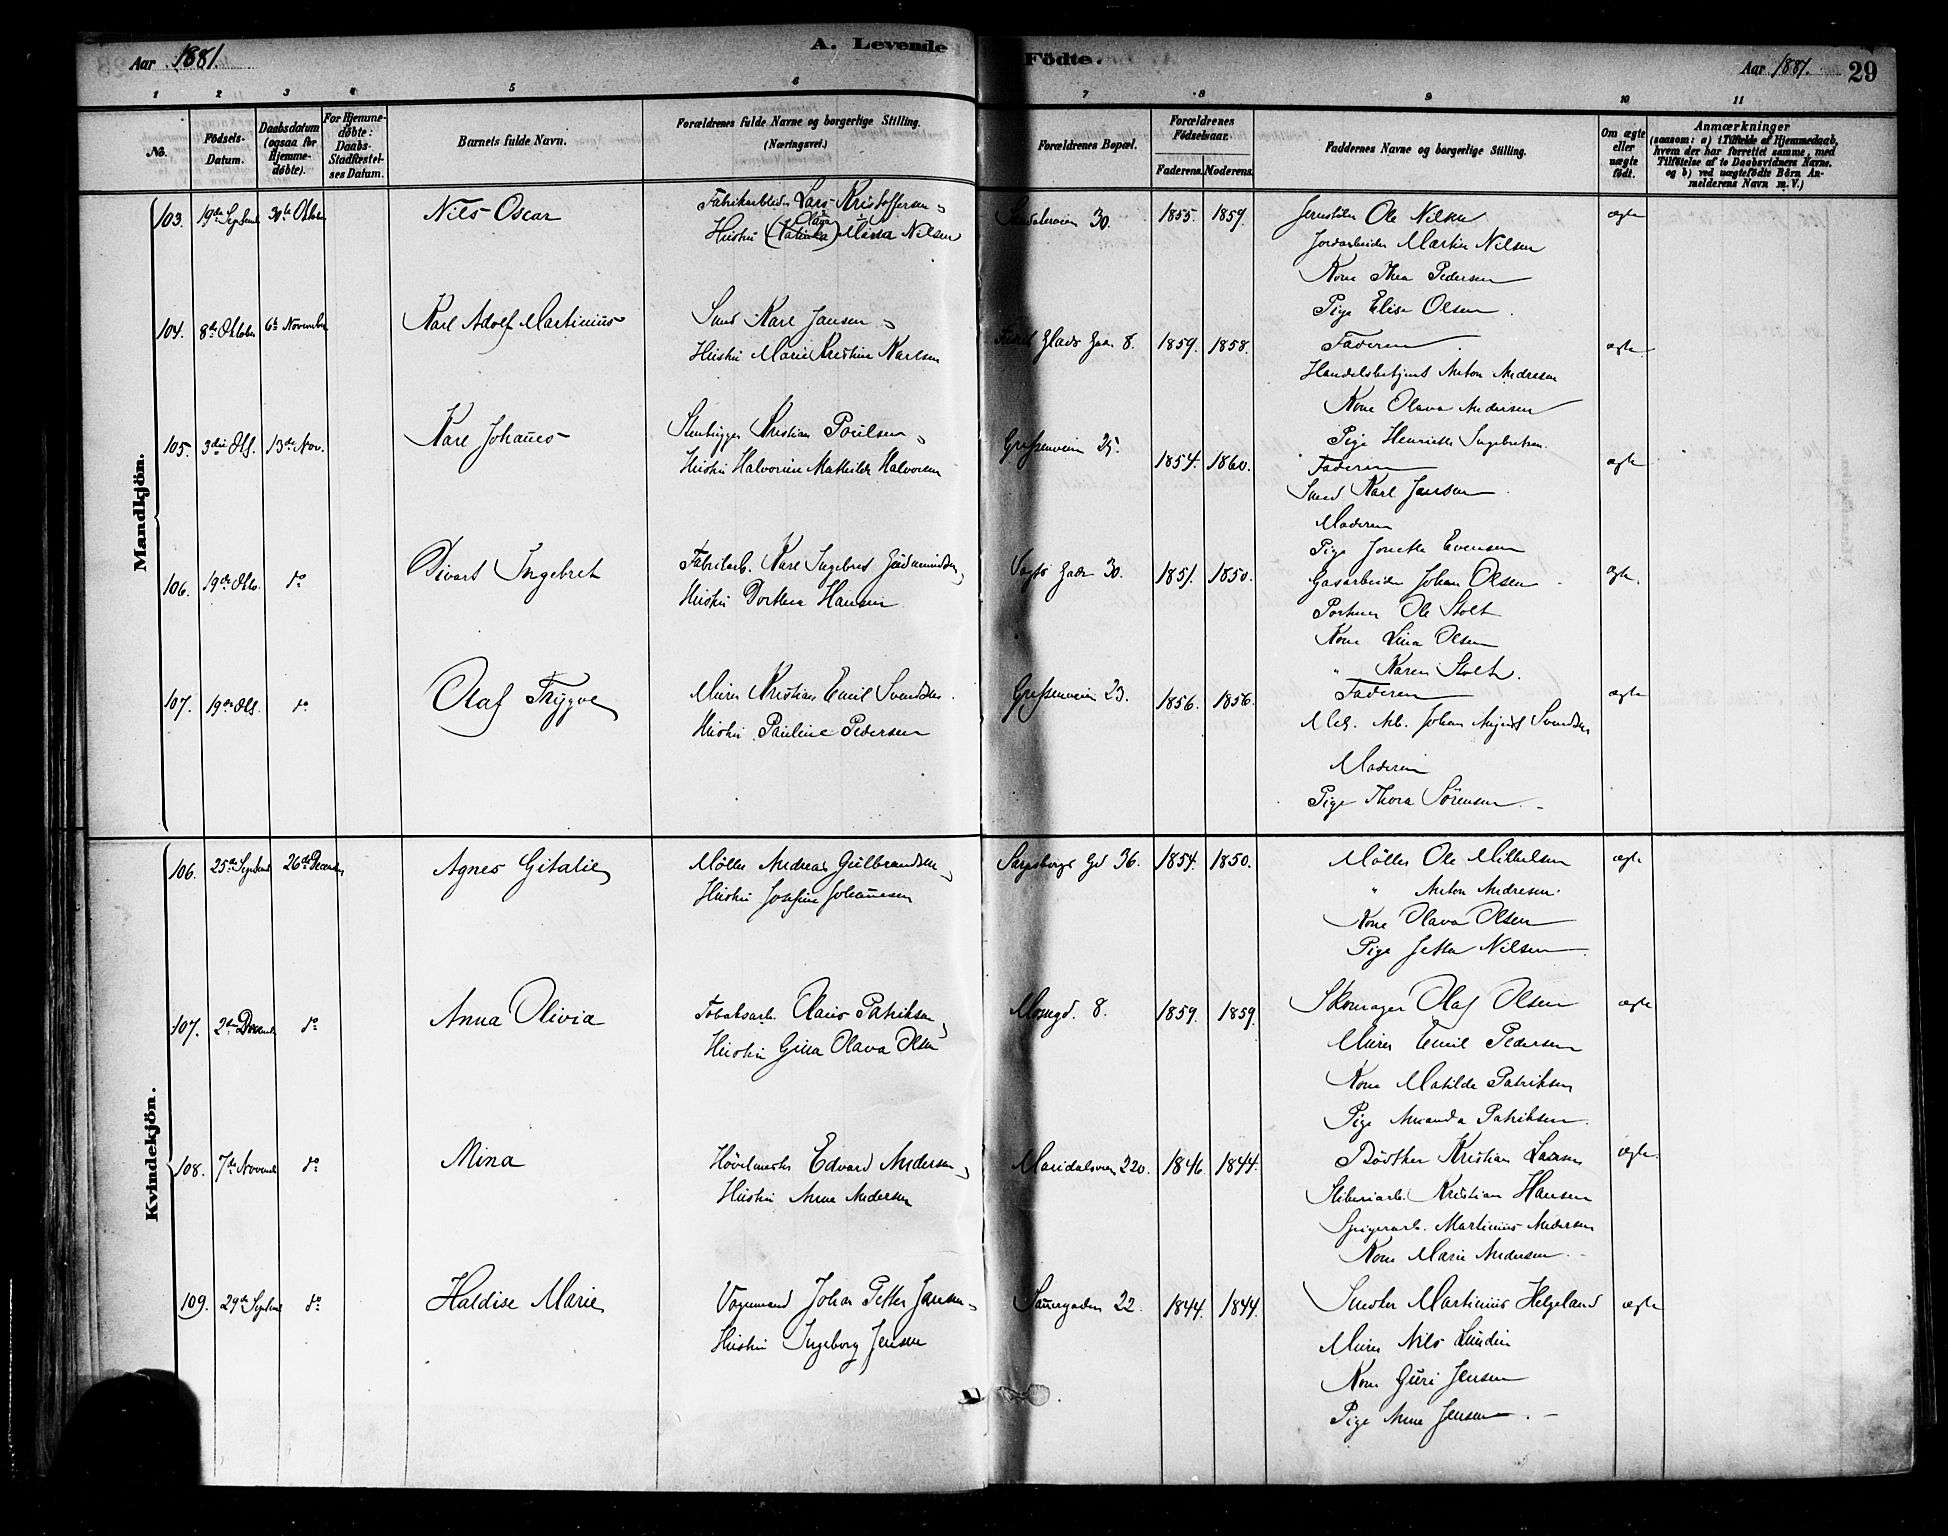 Aar 1881.
A. Levende Födte.
Aar 1881. 29
1 2 3 4 5 6 7 8 9 10 11
No.
Födsels-Datum.
Daabsdatum (ogsaa for Hjemme-döbte).
For Hjemme-döbte: Daabs-Stadfæstel-ses Datum.
Barnets fulde Navn.
Forældrenes fulde Navne og borgerlige Stilling.
(Næringsvei.)
Forældrenes Bopæl.
Forældrenes Födselsaar.
Faderens. Moderens.
Faddernes Navne og borgerlige Stilling.
Om ægte eller uægte födt.
Anmærkninger
(saasom: a) i Tilfælde af Hjemmedaab,
hvem der har forrettet samme, med
Tilföielse af to Daabsvidners Navne.
og b) ved uægtefödte Börn An-
melderens Navn m. V.)
Mandkjön.
103. 19de Septemb 30te Oktober Nils Oscar Fabrikarbeider Lars Kristoffersen
Hustru (Katinka) Olava Maria Nilsen
Sandakerveien 30. 1855. 1859. Jernstöber Ole Nilsen ægte
Jordarbeider Martin Nilsen
Kone Thea Pedersen
Pige Elise Olsen.
104. 8de Oktober 6te November Karl Adolf Martinius Smed Karl Jansen
Hustru Marie Kristine Karlsen
Glads Gade 8. 1859. 1858. Faderen ægte
Handelsbetjent Anton Andresen
Kone Olava Andersen
Pige Henriette Ingebretsen
105. 3die Okt. 13de Nov. Kare Johanes Stenhugger Kristian Poulsen
Hustru Halvorine Mathilde Halvorsen
Grefsenveien 25. 1854. 1860. Faderen ægte
Smed Karl Jansen
Moderen
Pige Jonette Evensen
106. 19de Okto. do Sivart Ingebret Fabrikarb. Kare Ingebret Gudmundsen
Hustru Dorthea Hansen
Vogts Gade 30. 1851. 1850. Gasarbeider Johan Olsen ægte.
Portner Ole Stolt
Kone Lina Olsen
" Karen Stolt.
107. 19de Okt. do Olaf Trygve Murer Kristian Emil Svendsen.
Hustru Pauline Pedersen
Grefsenveien 23. 1856. 1856. Faderen ægte
Mek. Arb. Johan August Svendsen
Moderen
Pige Thora Sörensen
Kvindekjön.
106. 25de Septemb 26de December Agnes Gitalie Möller Andreas Gulbrandsen
Hustru Josefine Johannesen
Sarpsborg Gd 36. 1854. 1850. Möller Ole Mikkelsen ægte
" Anton Andresen.
Kone Olava Olsen
Pige Jetta Nilsen
107. 2den Decemb do Anna Olivia Tobaksarb. Olaus Patriksen
Hustru Gina Olava Olsen
Mosegd. 8. 1859. 1859. Skomager Olaf Olsen ægte
Murer Emil Pedersen
Kone Matilde Patriksen
Pige Amanda Patriksen.
108. 7de Novemb do Mina Hövlmester Edvard Andersen
Hustru Anne Andersen
Maridalsveien 220. 1846. 1844. Bödker Kristian Larsen ægte.
Stiberiarb. Kristian Hansen
Spigerarb. Martinius Andersen
Kone Marie Andersen
109. 29de Septemb do Haldise Marie Vognmand Johan Petter Jansen
Hustru Ingeborg Jensen
Sannergaden 22. 1844. 1844. Snedker Martinius Helgeland ægte
Murer Nils Lundin
Kone Guri Jensen
Pige Anne Jensen